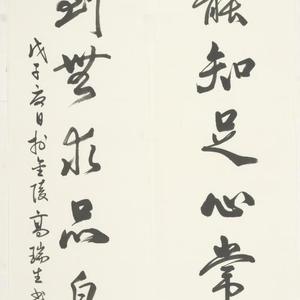 能知足心常
到無求品自
戊子夏日於金陵高瑞生書